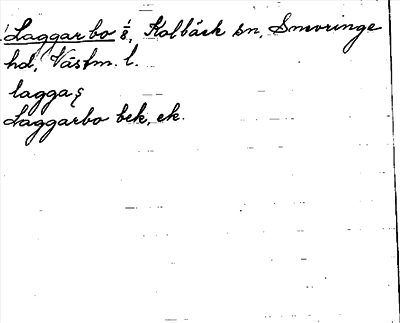 Laggarbo 1/8, Kolbäck sn, Snevringe
hd, Västm. l.
lagga
Laggarbo bek, ek.